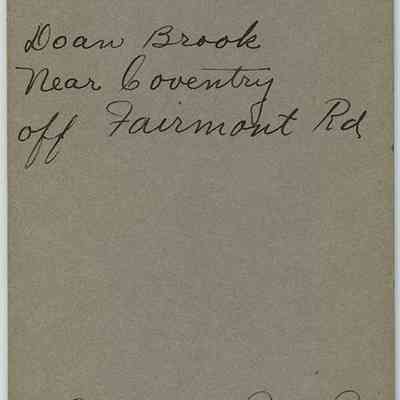 Doan Brook
Near Coventry
off Fairmont Rd